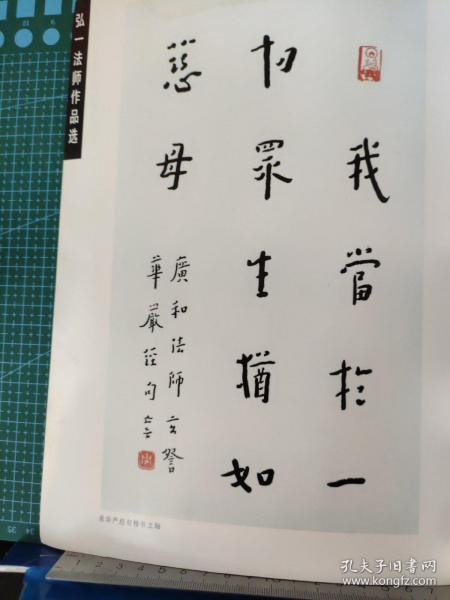 弘一法师作品选
我當於一
切眾生猶如
慈母
廣和法師
華嚴經句
孔夫子旧书网
www.kongfz.com